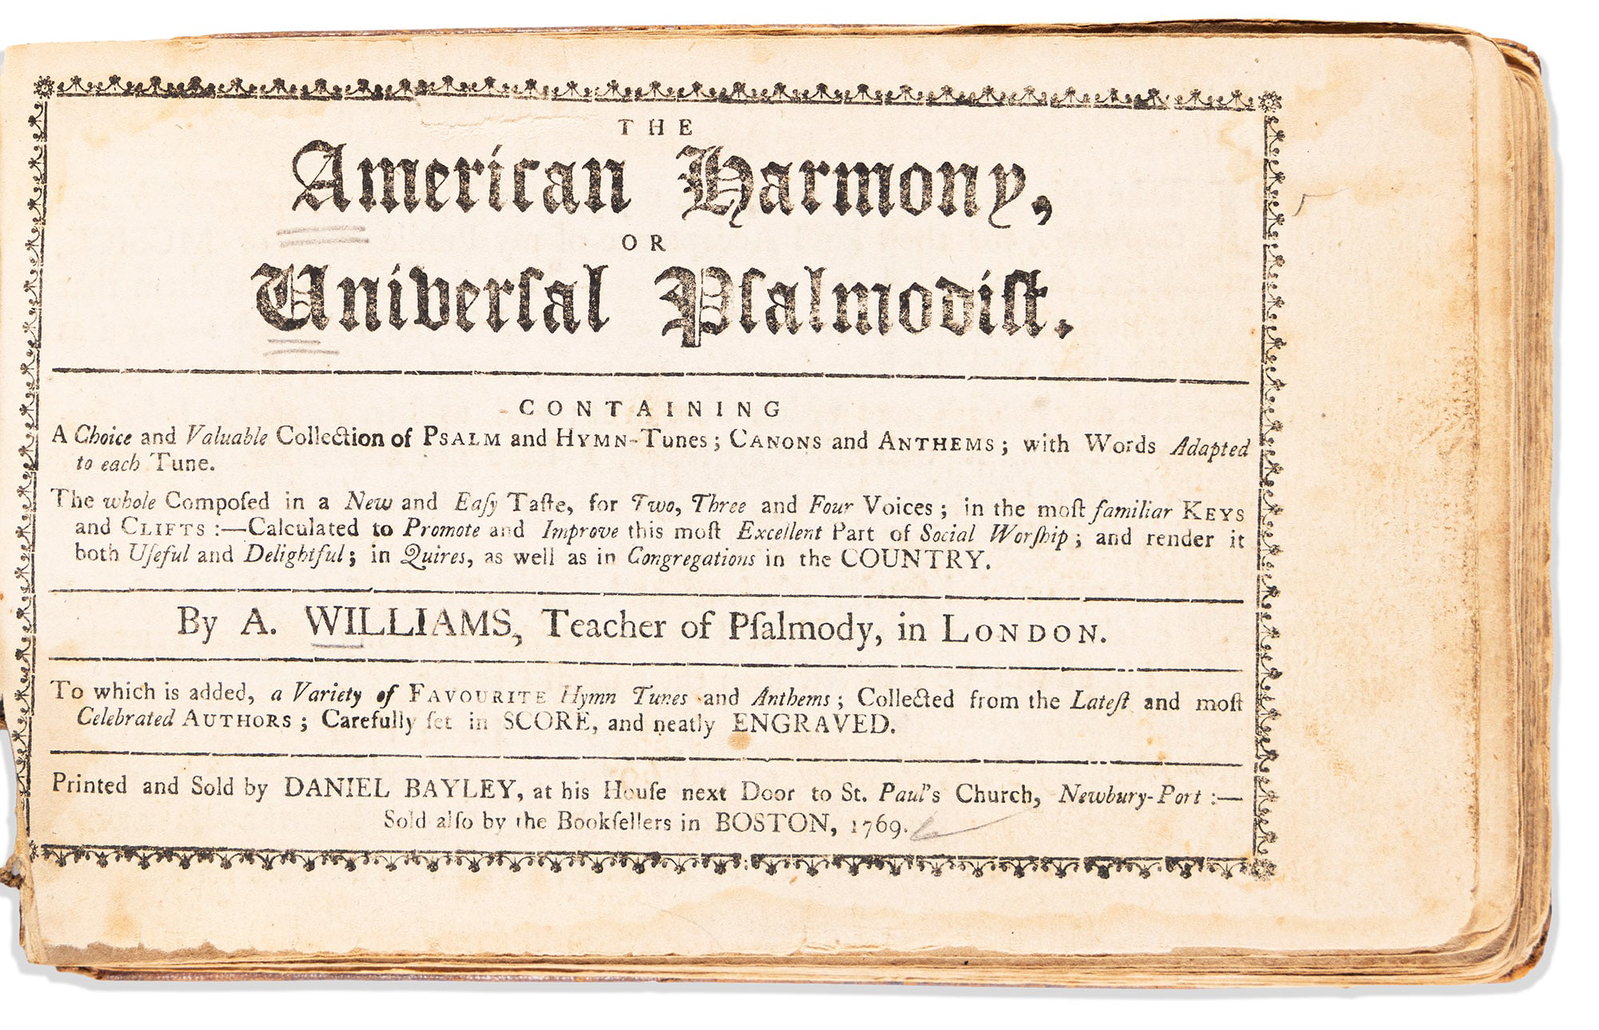 THE
American Harmony,
OR
Univerſal Pſalmodiſt.
CONTAINING
A Choice and Valuable Collection of PSALM and HYMN-Tunes; CANONS and ANTHEMS; with Words Adapted
to each Tune.
The whole Compoſed in a New and Eaſy Taſte, for Two, Three and Four Voices; in the moſt familiar KEYS
and CLIFTS :—Calculated to Promote and Improve this moſt Excellent Part of Social Worſhip; and render it
both Uſeful and Delightful; in Quires, as well as in Congregations in the COUNTRY.
By A. WILLIAMS, Teacher of Pſalmody, in LONDON.
To which is added, a Variety of FAVOURITE Hymn Tunes and Anthems; Collected from the Lateſt and moſt
Celebrated AUTHORS; Carefully ſet in SCORE, and neatly ENGRAVED.
Printed and Sold by DANIEL BAYLEY, at his Houſe next Door to St. Paul's Church, Newbury-Port :—
Sold alſo by the Bookſellers in BOSTON, 1769.